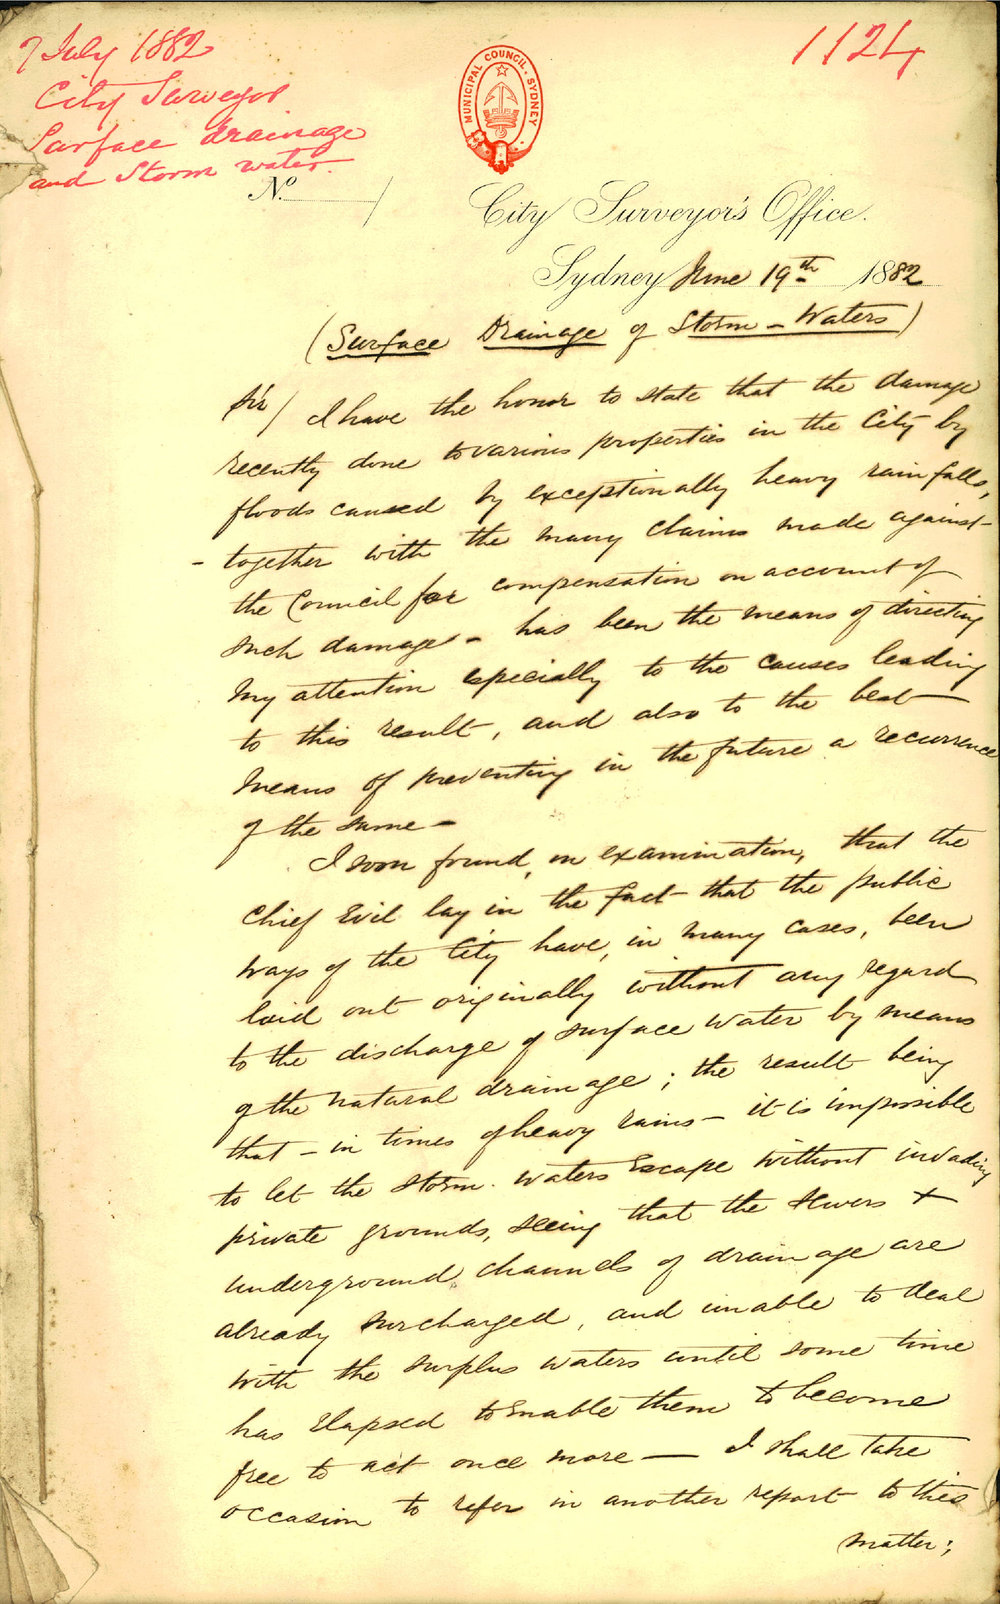 7 July 1882
City Surveyor
Surface drainage
and Storm water.
1124
MUNICIPAL COUNCIL, SYDNEY
No.
City Surveyor's Office.
Sydney June 19th 1882
(Surface Drainage of Storm-Waters)
Sir/ I have the honor to state that the damage
recently done to various properties in the City by
floods caused by exceptionally heavy rainfalls,
- together with the many claims made against
the Council for compensation on account of
such damage - has been the means of directing
my attention especially to the causes leading
to this result, and also to the best
means of preventing in the future a recurrence
of the same -
I soon found, on examination, that the
chief Evil lay in the fact that the public
ways of the City have, in many cases, been
laid out originally without any regard
to the discharge of surface water by means
of the natural drainage; the result being
that - in times of heavy rains - it is impossible
to let the storm-waters Escape without invading
private grounds, seeing that the sewers +
underground channels of drainage are
already surcharged, and unable to deal
with the surplus waters until some time
has Elapsed to Enable them to become
free to act once more — I shall take
occasion to refer in another report to this
matter;